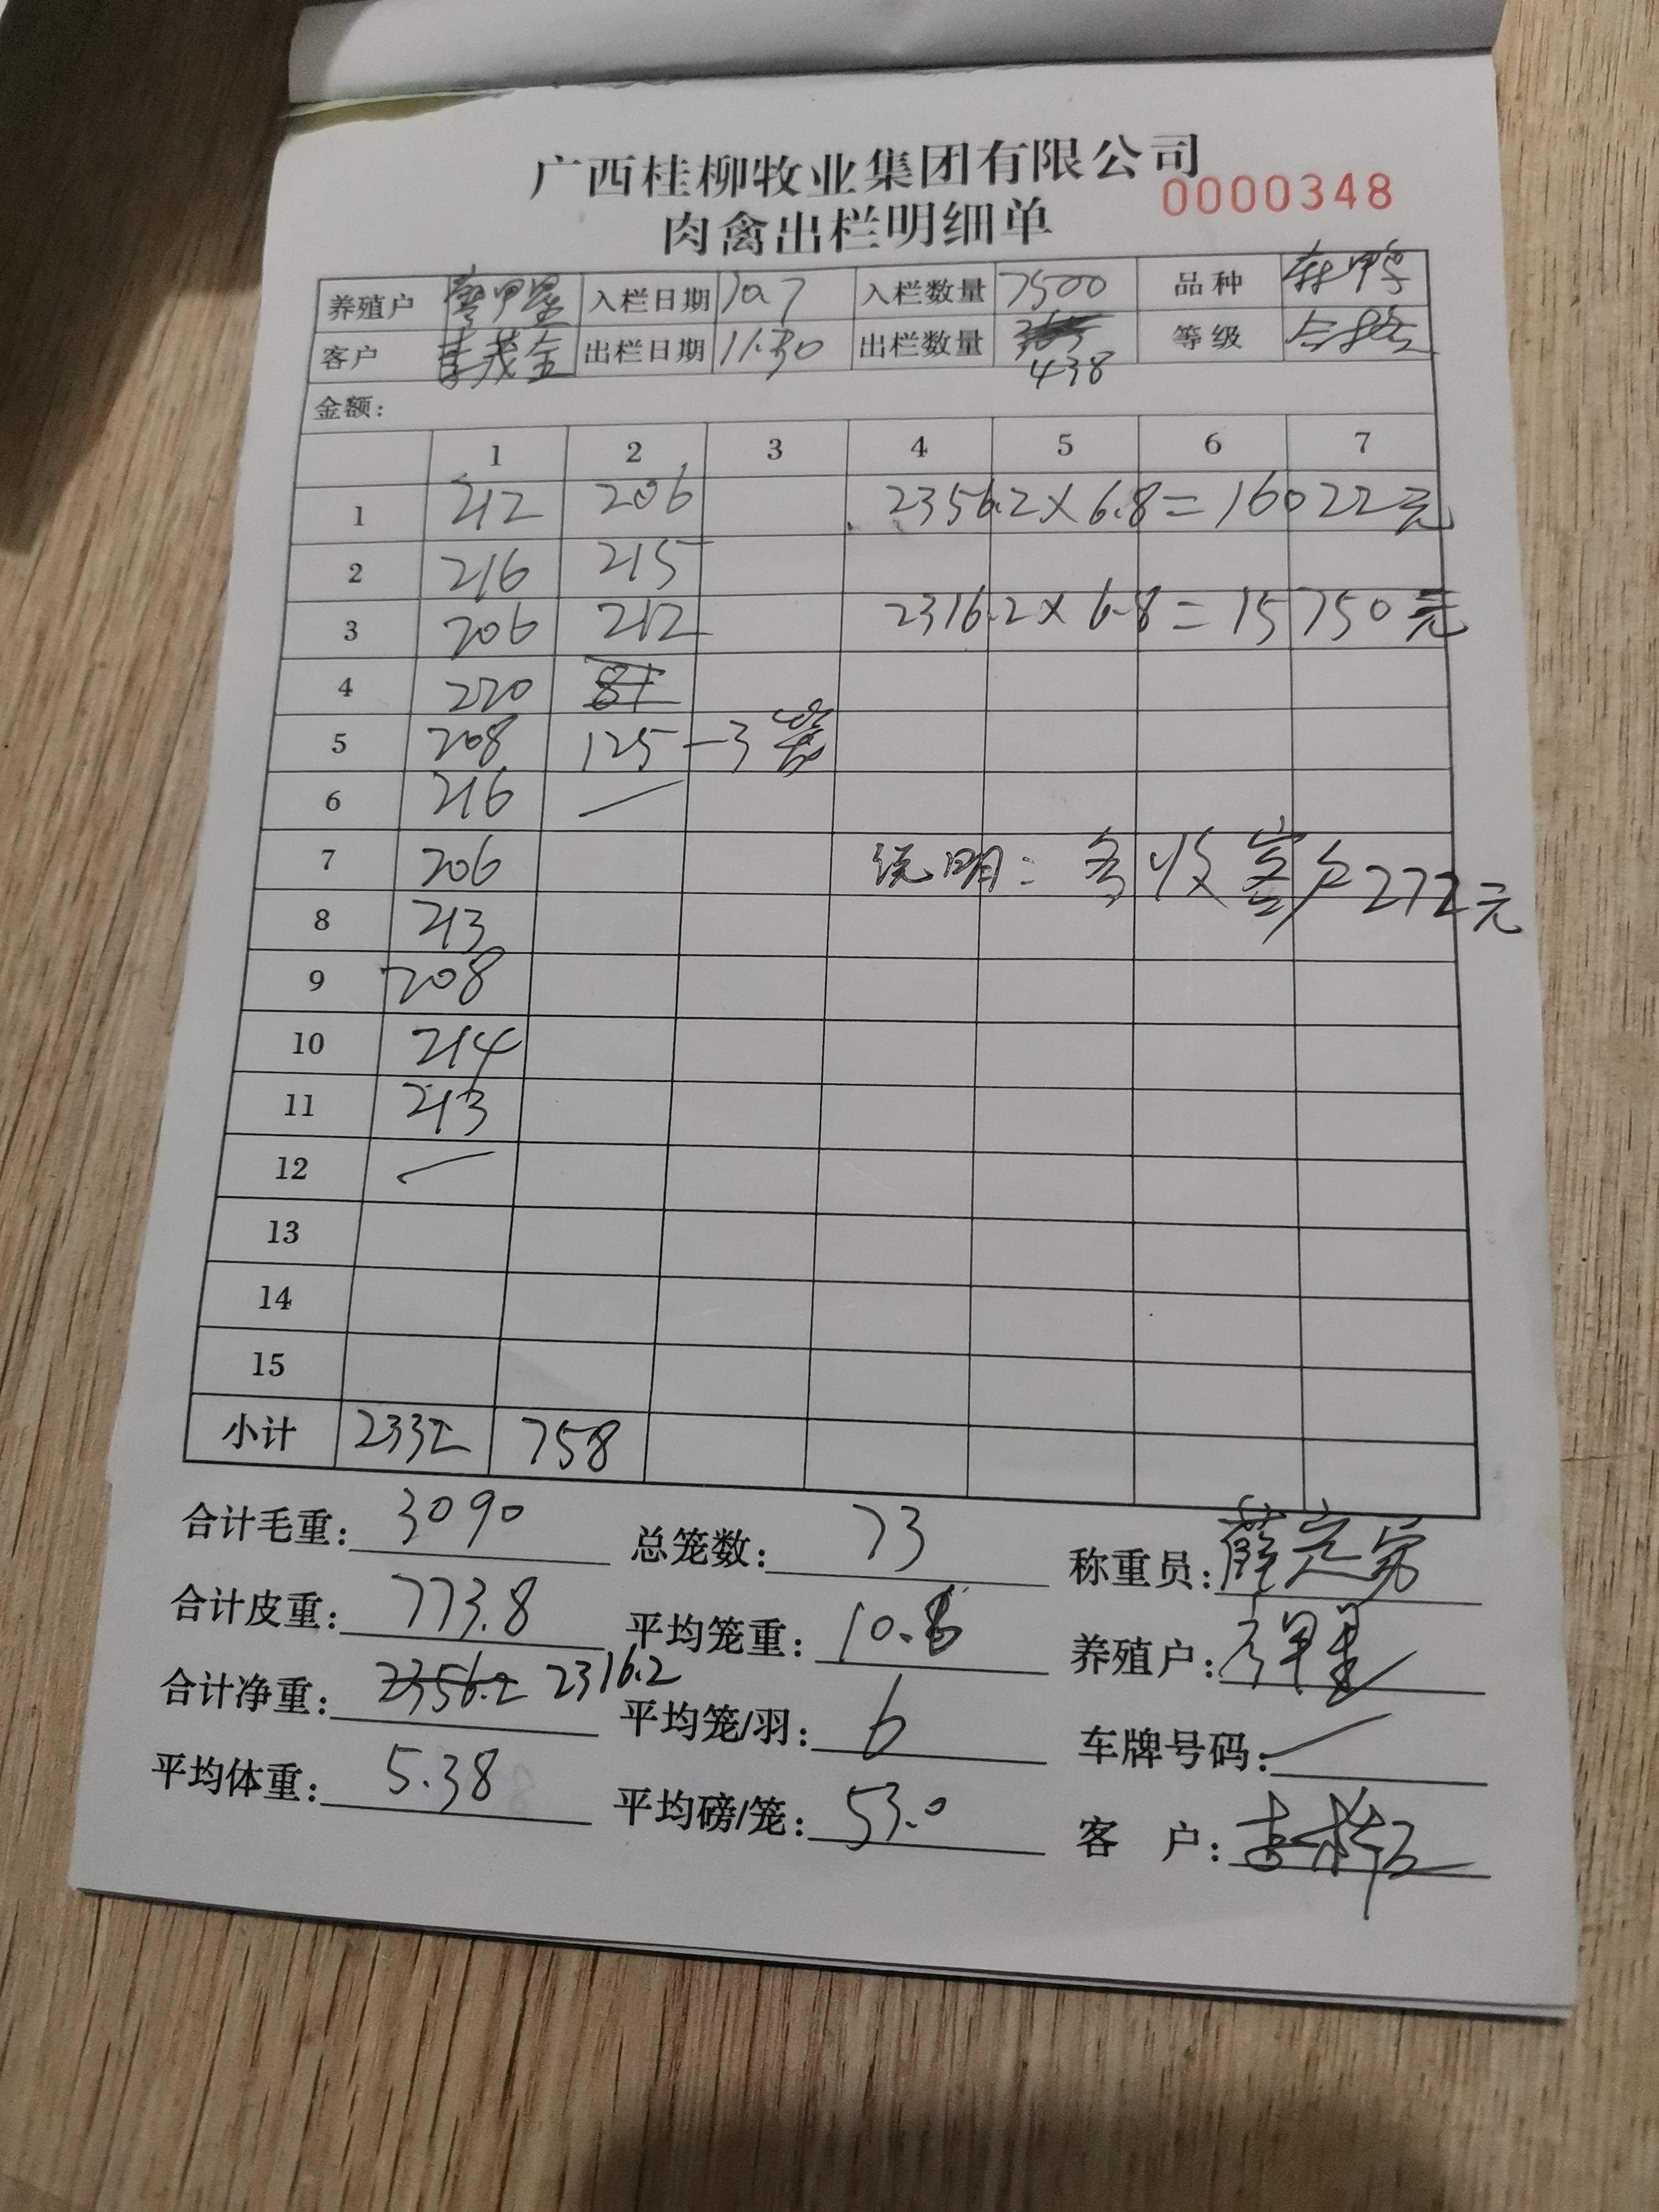 广西桂柳牧业集团有限公司
0000348
肉禽出栏明细单
养殖户 入栏日期 10.7 入栏数量 7500 品种
客户 李茂金 出栏日期 11.30 出栏数量 438 等级
金额：
1 2 3 4 5 6 7
1 212 206 2356.2×6.8=16022元
2 216 215
3 206 212 2316.2×6.8=15750元
4 220 81
5 208 125-3笼
6 216 —
7 206 说明：多收客户272元
8 213
9 208
10 214
11 213
12 —
13
14
15
小计 2332 758
合计毛重：3090 总笼数：73 称重员：薛定勇
合计皮重：773.8 平均笼重：10.6 养殖户：
合计净重：2356.2 2316.2 平均笼/羽：6 车牌号码：—
平均体重：5.38 平均磅/笼：53.0 客 户：